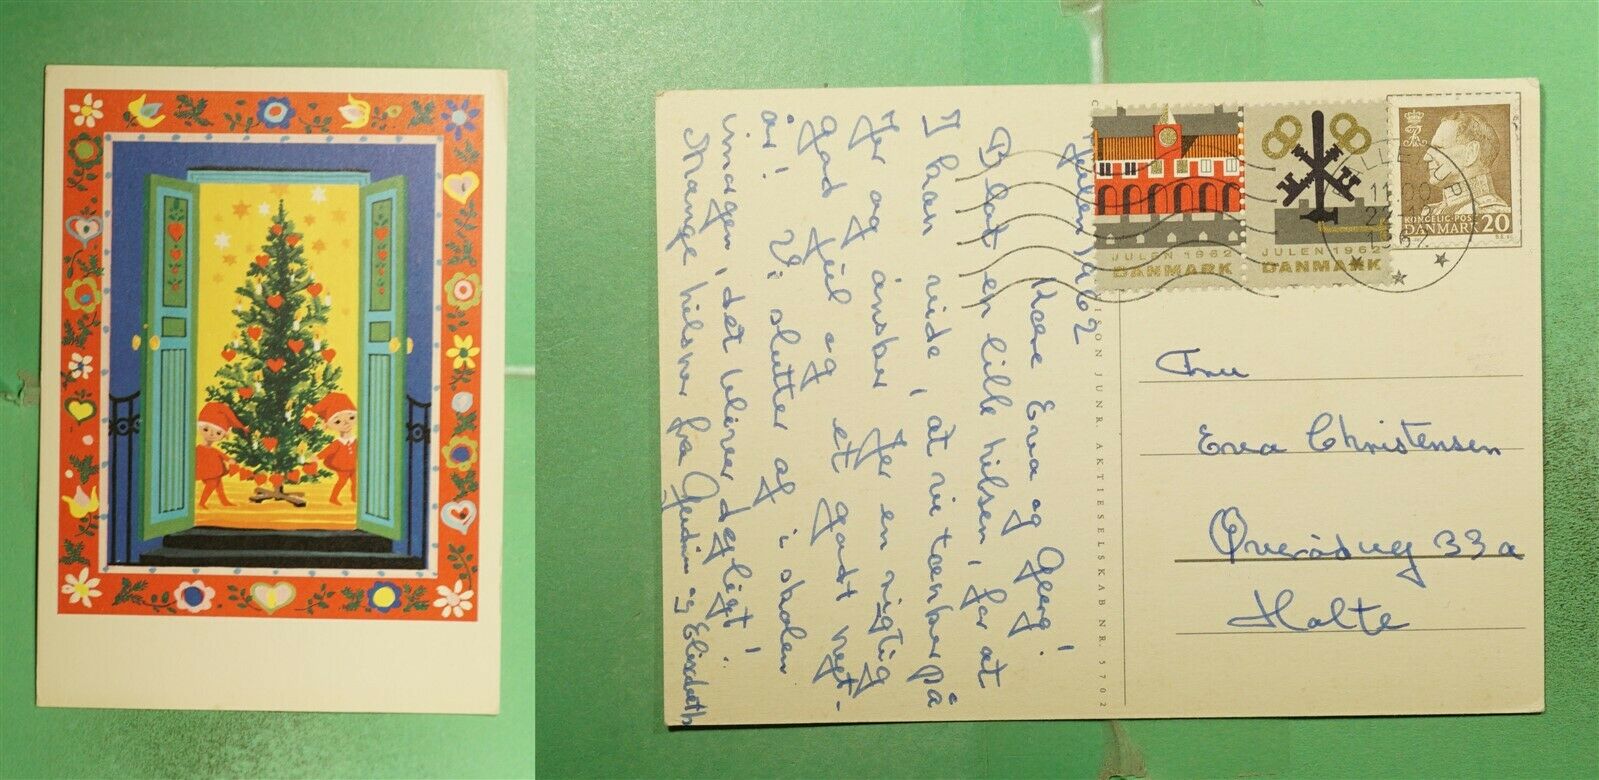 Julen 1962
Kære Eva og Georg!
Blot en lille hilsen, for at
I kan vide, at vi tænker på
Jer og ønsker Jer en rigtig
god jul og et godt nyt-
år! Vi slutter af i skolen
i morgen, det bliver dejligt!
Mange hilsner fra og Elisabeth
JULEN 1962
DANMARK
JULEN 1962
DANMARK
KONGELIG POST
DANMARK 20
11.00
ION JUNR. AKTIESELSKAB NR. 5702
Fru
Eva Christensen
Øverødvej 33a
Holte